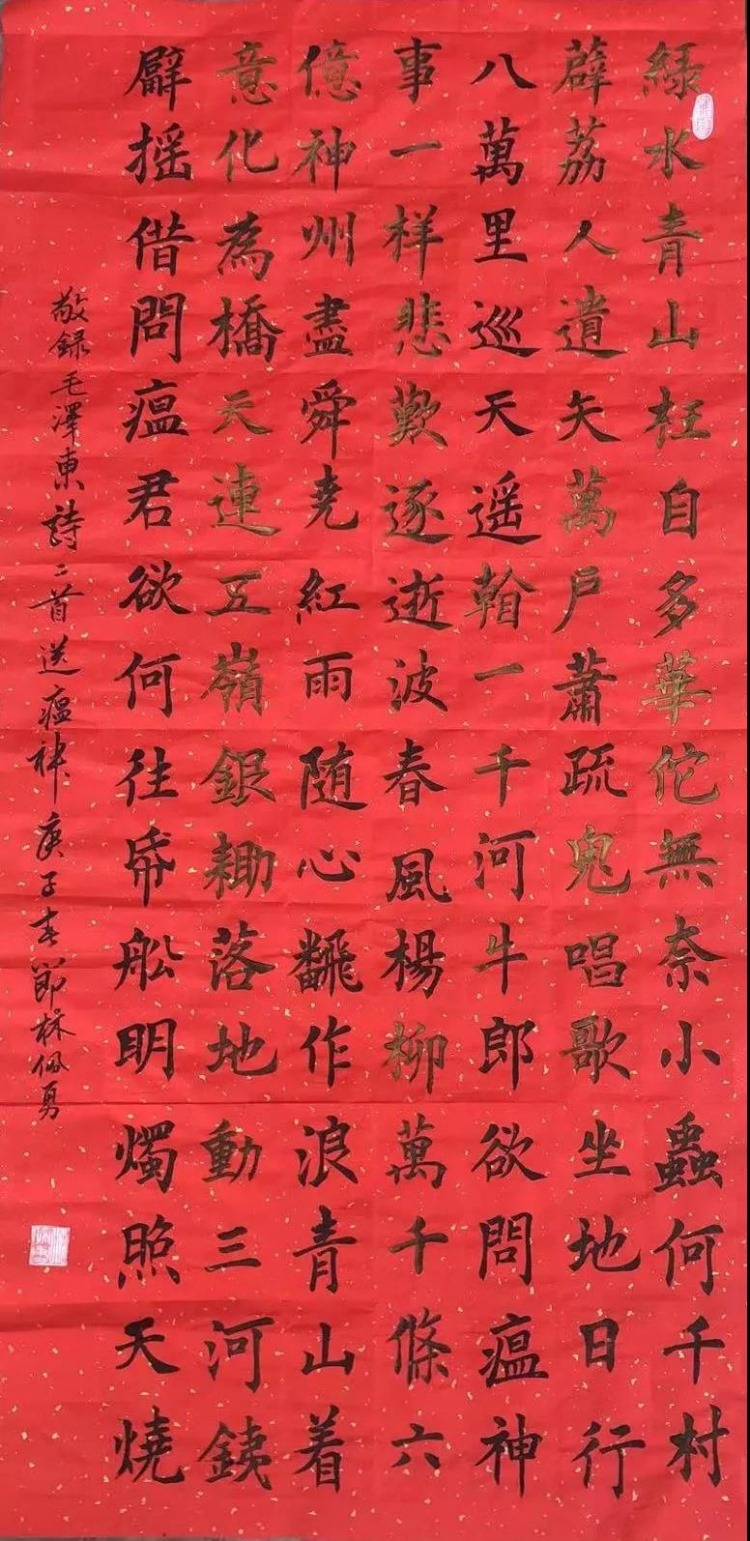 綠水青山枉自多華佗無奈小蟲何千村
薜荔人遺矢萬户蕭疏鬼唱歌坐地日行
八萬里巡天遥看一千河牛郎欲問瘟神
事一样悲歎逐逝波春風楊柳萬千條六
億神州盡舜堯紅雨随心飜作浪青山着
意化為橋天連五嶺銀耡落地動三河銕
臂摇借問瘟君欲何往帋船明燭照天燒
敬録毛澤東詩二首送瘟神庚子春節林佩勇